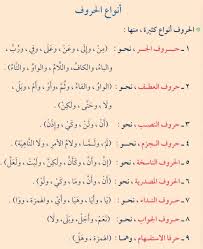 أنواع الحروف
• الحروف أنواع كثيرة ، منها :
١ - حــروف الجــر ، نحــو : (مِنْ، وإلى، وعَنْ، وعَلى، وفي، ورُبَّ،
والباء، والكاف، واللام، والواو، والتاء).
٢ - حروف العطـف ، نحــو : (الواو، والفاء، وثُمَّ، وأوْ، وأمْ، وبَل،
ولا، وحتى، ولكِنْ).
٣ - حروف النصـب ، نحــو : (أنْ، ولَنْ، وكَيْ، وإذَنْ).
٤ - حروف الجــزم ، نحــو : (لَمْ، ولَمَّا، ولام الأمر، ولا الناهية).
٥ - الحروف الناسخة ، نحو : (إنَّ، وأنَّ، وكأنَّ، ولكنَّ، وليْتَ، ولَعَلَّ).
٦ - الحروف المصدرية ، نحو : (أنْ، وأنَّ، وكَيْ، وما، ولَوْ).
٧ - حروف النداء، نحــو : (يا، وأيا، وهَيا، وأيْ، والهمزة، ووا).
٨ - حروف الجواب ، نحــو : (نعَمْ، وأجَلْ، وبَلى، ولا).
٩ - حرفا الاستفهام ، وهمـا : (الهمزة، وهَلْ).